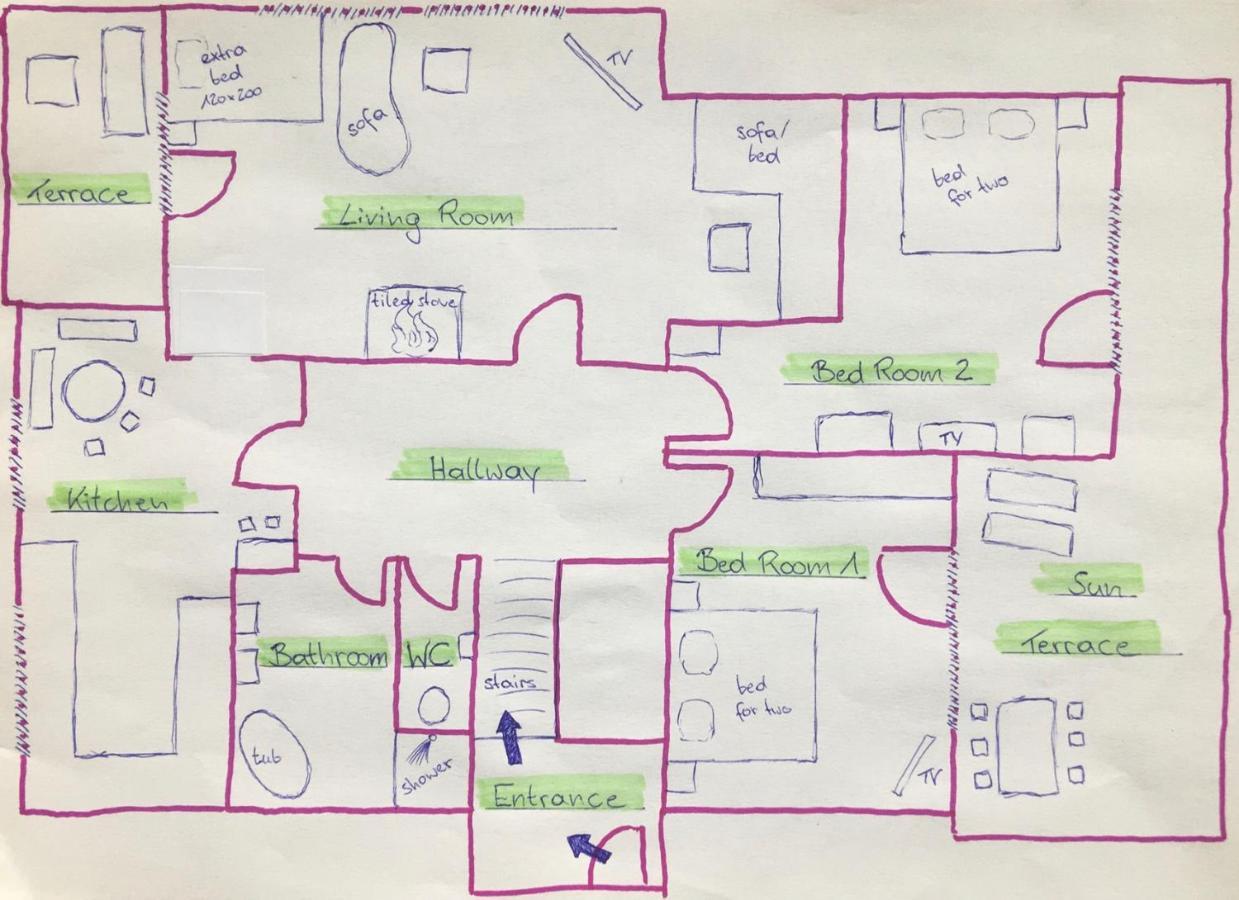 extra
bed
120x200
TV
sofa
sofa/
bed
bed
for two
Terrace
Living Room
tiled stove
Bed Room 2
TV
Hallway
Kitchen
Bed Room 1
Sun
Terrace
Bathroom
WC
stairs
bed
for two
tub
shower
TV
Entrance